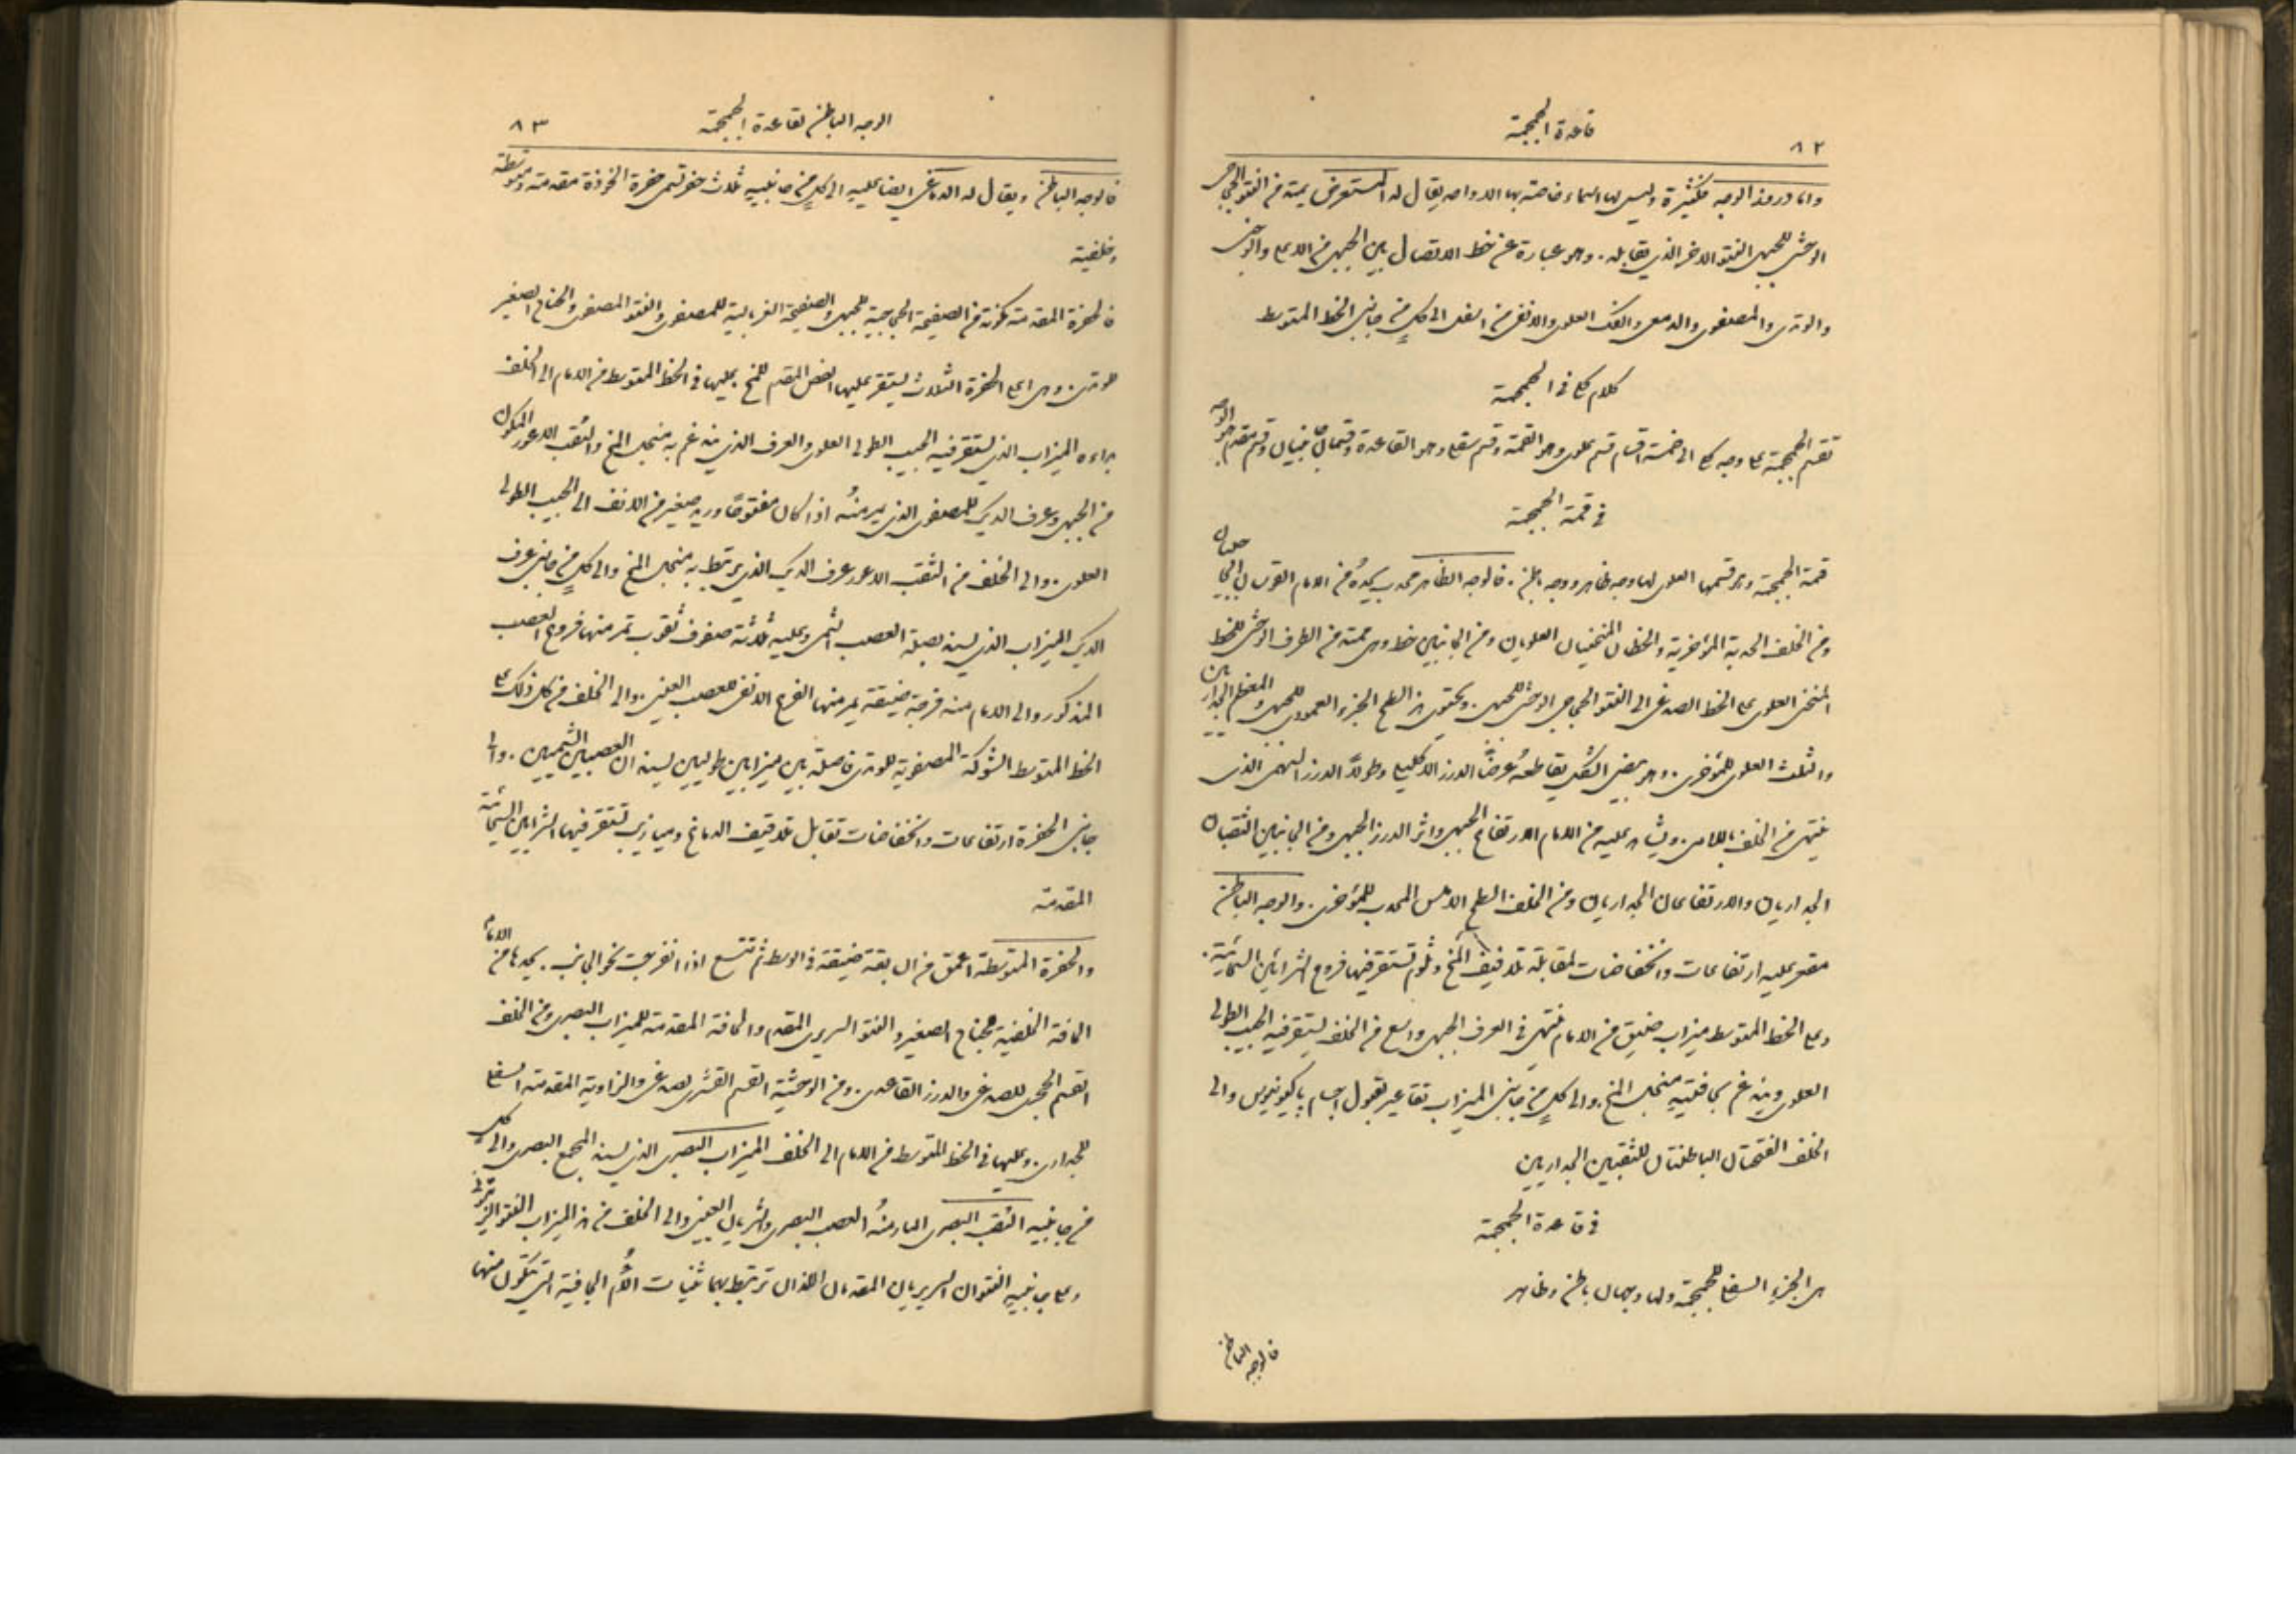 ٨٢
قاعدة الجمجمة
واما دروز الوجه فكثيرة وليس لها اسماء خاصة بها الا واحد يقال له المستعرض يمتد من النتو الحجاجي
الوحشي للجبهي الى النتو الاخر الذي يقابله . وهو عبارة عن خط الاتصال بين الجبهي من الاعلى والوجني
والوتدي والمصفوي والدمعي والفك العلوي والانفي من اسفل الى كل من جانبي الخط المتوسط
كلام كلي في الجمجمة
تقسم الجمجمة على وجه كلي الى خمسة اقسام قسم علوي وهو القمة وقسم سفلي وهو القاعدة وقسمان جانبيان وقسم مقدم هو الوجه
في قمة الجمجمة
قمة الجمجمة وهو قسمها العلوي لها وجه ظاهر ووجه باطن . فالوجه الظاهر محدب يحده من الامام القوسان الحجاجيان
ومن الخلف الحدبة المؤخرية والخطان المنحنيان العلويان ومن الجانبين خط وهمي ممتد من الطرف الوحشي للخط
المنحني العلوي على الخط الصدغي الى النتو الحجاجي الوحشي للجبهي . ويحتوي هذا السطح الجزء العمودي للجبهي ومعظم الجداريين
والثلث العلوي للمؤخري . وهو بيضي الشكل يقاطعه عرضًا الدرز الاكليلي وطولًا الدرز السهمي الذي
ينتهي من الخلف باللامي . ويشاهد عليه من الامام الارتفاع الجبهي واثر الدرز الجبهي ومن الجانبين الثقبان
الجداريان والارتفاعان الجداريان ومن الخلف السطح الاملس المحدب للمؤخري . والوجه الباطن
مقعر عليه ارتفاعات وانخفاضات لمقابلة تلافيف المخ وثلوم تستقر فيها فروع الشرايين السحائية .
وعلى الخط المتوسط ميزاب ضيق من الامام ينتهي في العرف الجبهي واسع من الخلف ليستقر فيه الجيب الطولي
العلوي ويندغم بحافتيه منجل المخ . والى كل من جانبي الميزاب تقاعير لقبول اجسام باكيونيوس والى
الخلف الفتحتان الباطنتان للثقبين الجداريين
في قاعدة الجمجمة
هي الجزء السفلي للجمجمة ولها وجهان باطن وظاهر
فالوجه الباطن
الوجه الباطن لقاعدة الجمجمة
٨٣
فالوجه الباطن ويقال له الدماغي ايضا عليه الى كل من جانبيه ثلاث حفر تسمى حفرة الخوذة مقدمة ومتوسطة
وخلفية
فالحفرة المقدمة مكونة من الصفيحة الحجاجية للجبهي والصفيحة الغربالية للمصفوي والنتو المصفوي والجناح الصغير
للوتدي . وهي اعلى الحفرة الثلاث ليستقر عليها الفص المقدم للمخ . عليها في الخط المتوسط من الامام الى الخلف
براءه الميزاب الذي يستقر فيه الجيب الطولي العلوي والعرف الذي يندغم به منجل المخ والثقب الاعور المكون
من الجبهي وعرف الديك للمصفوي الذي يمر منهُ اذا كان مفتوحًا وريد صغير من الانف الى الجيب الطولي
العلوي . والى الخلف من الثقب الاعور عرف الديك الذي يرتبط به منجل المخ والى كل من جانبي عرف
الديك الميزاب الذي يسند بصلة العصب الشمي وعليه ثلاثة صفوف ثقوب تمر منها فروع العصب
المذكور والى الامام منه فرجة ضيقة يمر منها الفرع الانفي للعصب العيني . والى الخلف من كل ذلك على
الخط المتوسط الشوكة المصفوية للوتدي فاصلة بين ميزابين طوليين يسندان العصبين الشميين . والى
جانبي الحفرة ارتفاعات وانخفاضات تقابل تلافيف الدماغ وميازيب تستقر فيها الشرايين السحائية
المقدمة
والحفرة المتوسطة اعمق من السابقة ضيقة في الوسط ثم تتسع اذا انفرجت نحو الجانب . يحدها من الامام
الحافة الخلفية لجناح الصغير والنتو السريري المقدم والحافة المقدمة للميزاب البصري ومن الخلف
القسم الحجري للصدغي والدرز القاعدي . ومن الوحشية القسم القشري لصدغي والزاوية المقدمة السفلى
للجداري . وعليها في الخط المتوسط من الامام الى الخلف الميزاب البصري الذي يسند المجمع البصري والى كل
من جانبيه الثقب البصري المار منهُ العصب البصري والشريان العيني والى الخلف من هذا الميزاب النتو الزيتوني
وعلى جانبيه النتوان السريريان المقدمان اللذان ترتبط بهما ثنيات الأم الجافية التي تتكون منها